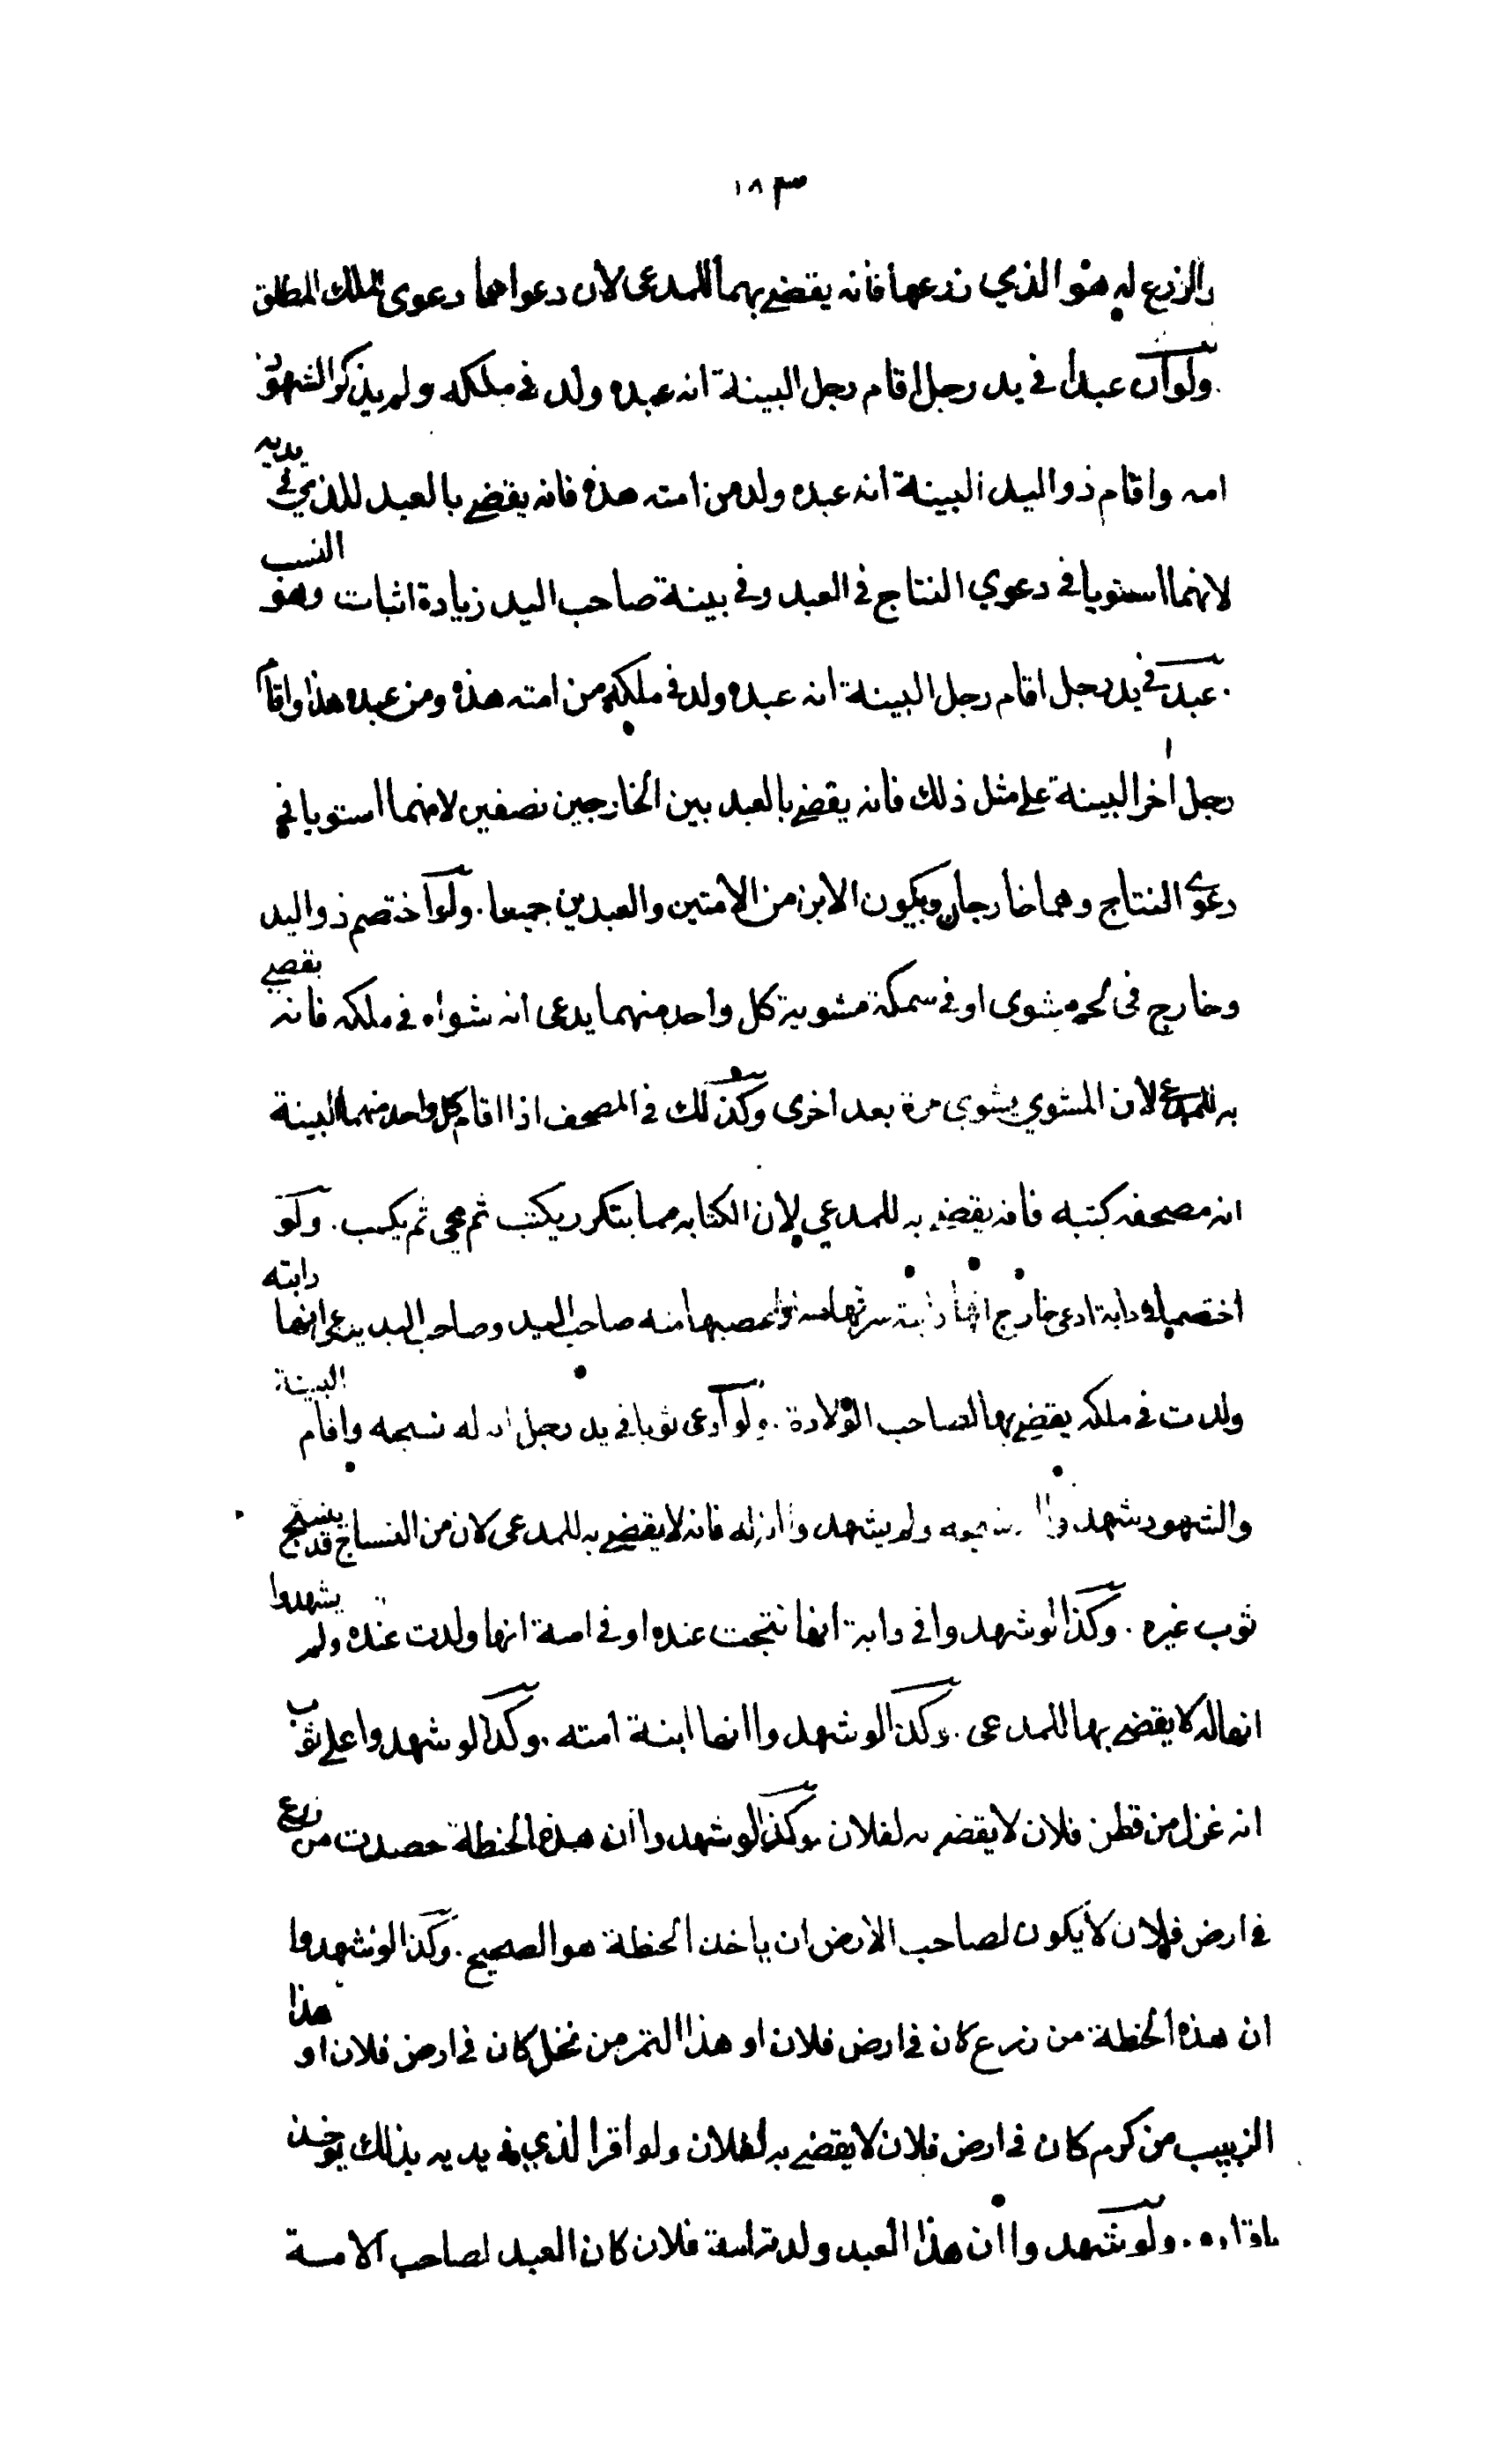 ١٨٣
والزرع له هو الذي زرعها فانه يقضي بهما للمدعى لان دعواهما دعوى الملك المطلق
ولو ان عبدا في يد رجل اقام رجل البينة انه عبده ولد في ملكه ولم يذكر الشهود
امه واقام ذو اليد البينة انه عبده ولد من امته هذه فانه يقضي بالعبد للذي في يديه
لانهما استويا في دعوي النتاج في العبد وفي بينة صاحب اليد زيادة اثبات وهو النسب
عبد في يد رجل اقام رجل البينة انه عبده ولد في ملكه من امته هذه ومن عبده هذا واقام
رجل اخر البينة على مثل ذلك فانه يقضي بالعبد بين الخارجين نصفين لانهما استويا في
دعوي النتاج وهما خارجان ويكون الابن من الامتين والعبدين جميعا . ولو اختصم ذو اليد
وخارج في لحم مشوى او في سمكة مشوية كل واحد منهما يدعى انه شواه في ملكه فانه يقضي
به للمدعي لان المشوي يشوى مرة بعد اخرى وكذلك في المصحف اذا اقام كل واحد منهما البينة
انه مصحفه كتبه فانه يقضي به للمدعي لان الكتابه مما يتكرر يكتب ثم يمحى ثم يكتب . ولو
اختصما في دابة ادعى خارج انها دابته منه صاحب اليد وصاحب اليد يدعى انها دابته
ولدت في ملكه يقضي بها لصاحب الولادة . ولو ادعى ثوبا في يد رجل انه له نسجه واقام البينة
والشهود شهدوا نسجه ولم يشهدوا انه له فانه لا يقضي به للمدعى لان من النساج قد ينسج
ثوب غيره . وكذا لو شهدوا في دابة انها نتجت عنده او في امة انها ولدت عنده ولم يشهدوا
انها له لا يقضي بها للمدعى . وكذا لو شهدوا انها ابنة امته . وكذا لو شهدوا على ثوب
انه غزل من قطن فلان لا يقضي به لفلان وكذا لو شهدوا ان هذه الحنطة حصدت من زرع
في ارض فلان لا يكون لصاحب الارض ان ياخذ الحنطة هو الصحيح . وكذا لو شهدوا
ان هذه الحنطة من زرع كان في ارض فلان او هذا التمر من نخل كان في ارض فلان او هذا
الزبيب من كرم كان في ارض فلان لا يقضي به لفلان ولو اقر الذي في يديه بذلك يوخذ
باقراره . ولو شهدوا ان هذا العبد ولدته امة فلان كان العبد لصاحب الامة